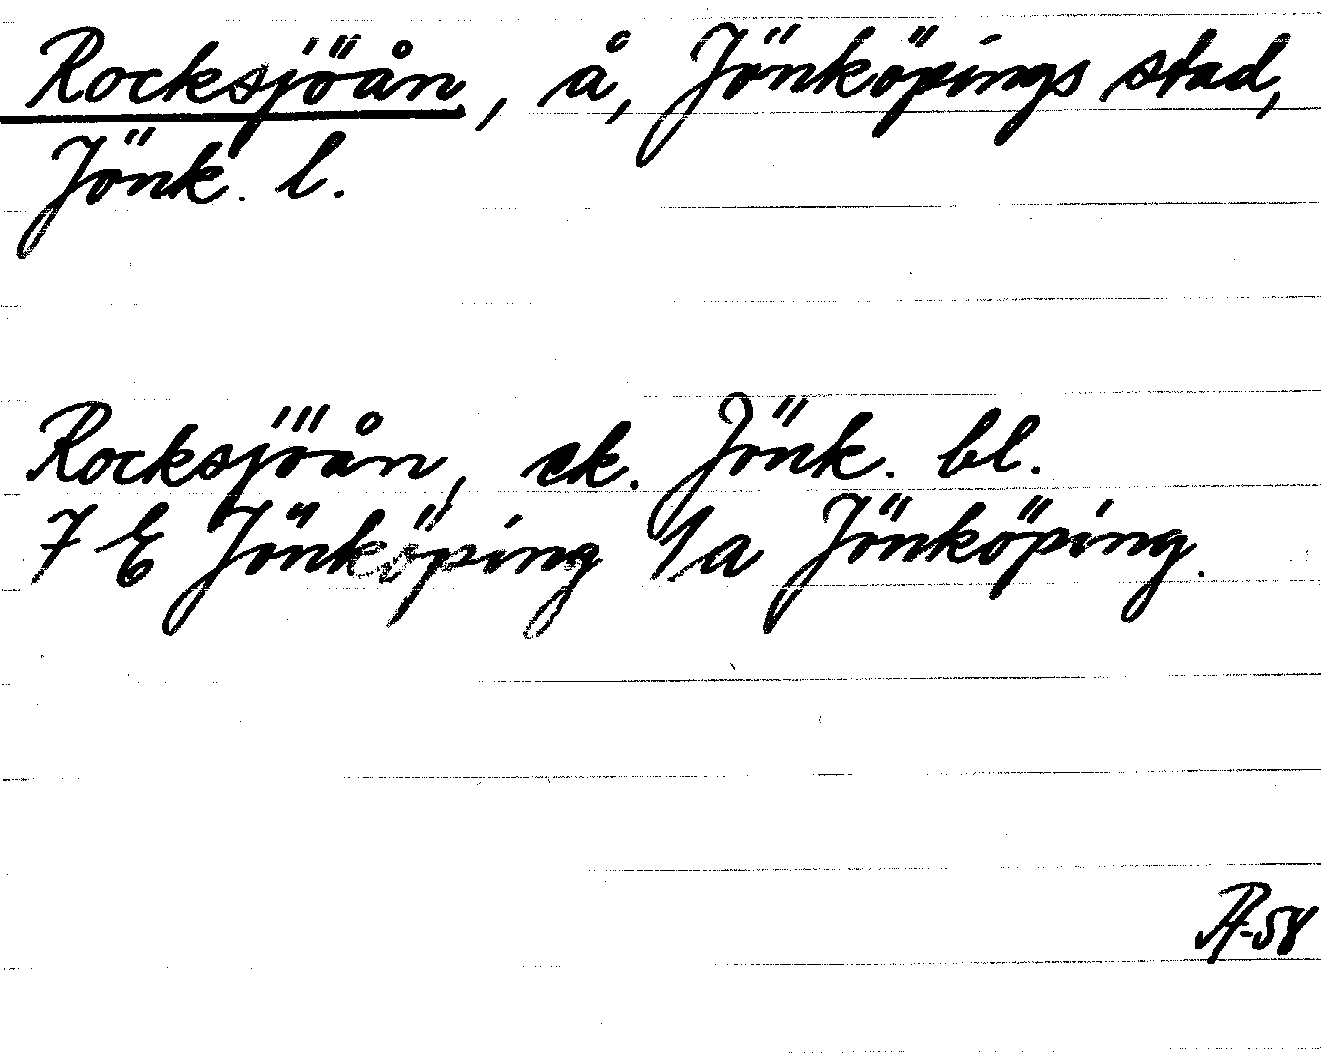 Rocksjöån, å, Jönköpings stad,
Jönk. l.
Rocksjöån, ek. Jönk. bl.
7 E Jönköping 1a Jönköping.